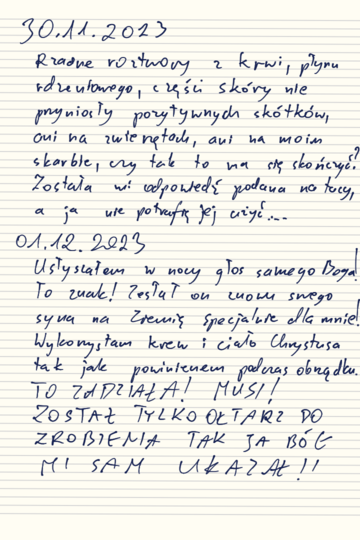 30.11.2023
Rzadne roztwory z krwi, płynu
rdzeniowego, części skóry nie
przyniosły pozytywnych skótków,
ani na zwierzętach, ani na moim
skarbie, czy tak to ma się skończyć?
Została mi odpowiedź podana na tacy,
a ja nie potrafię jej użyć...
01.12.2023
Usłyszałem w nocy głos samego Boga!
To znak! Zesłał on znowu swego
syna na Ziemię specjalnie dla mnie!
Wykorzystam krew i ciało Chrystusa
tak jak powinienem podczas obrządku.
TO ZADZIAŁA! MUSI!
ZOSTAŁ TYLKO OŁTARZ DO
ZROBIENIA TAK JA BÓG
MI SAM UKAZAŁ!!